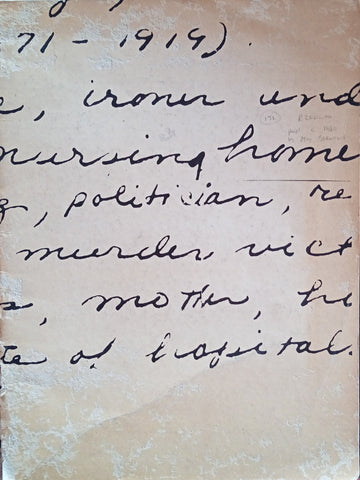 71 - 1919).
, ironer und
nursing home
, politician, re
murder, vict
s, mother, he
te of hospital.